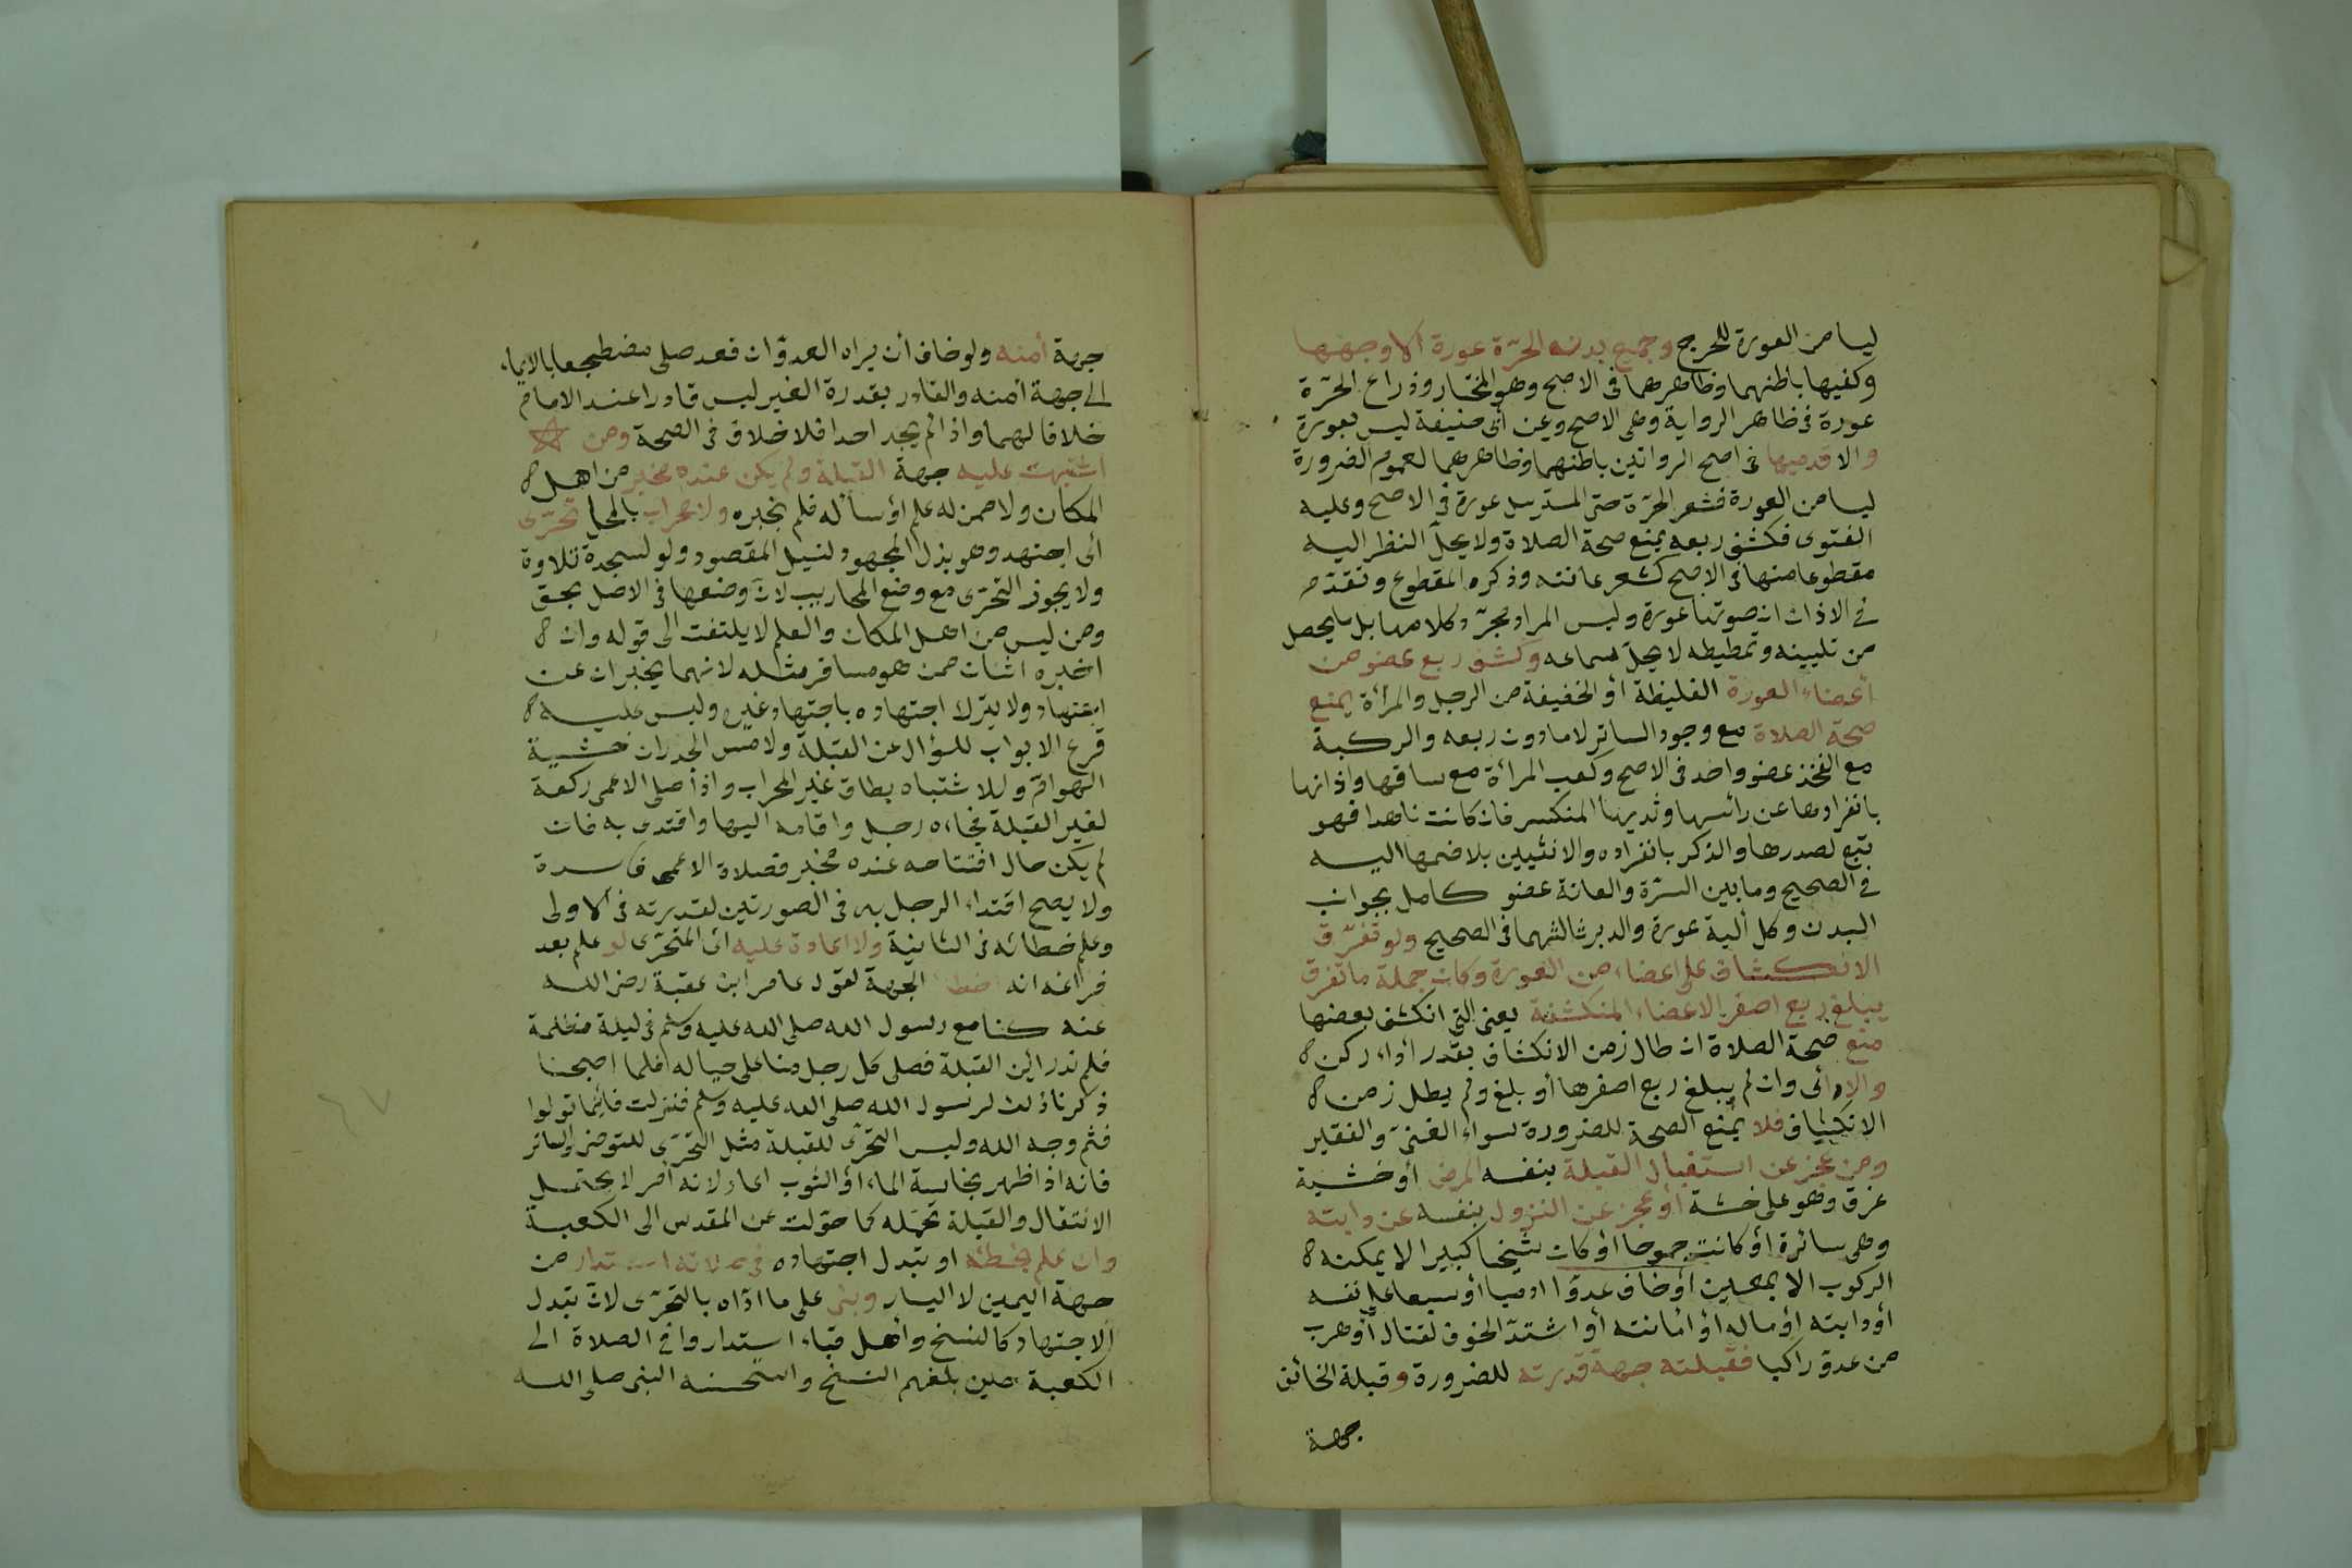 ليسا من العورة للحرج وجميع بدن الحرّة عورة الا وجهها
وكفيها باطنهما وظاهرهما فى الاصح وهو المختار وذراع الحرّة
عورة فى ظاهر الرواية وهى الاصح وعن أبى حنيفة ليس بعورة
والا قدميها فى اصح الروايتين باطنهما وظاهرهما لعموم الضرورة
ليسا من العورة فشعر الحرّة حتى المسترسل عورة فى الاصح وعليه
الفتوى فكشف ربعه يمنع صحة الصلاة ولا يحلّ النظر اليه
مقطوعا منها فى الاصح كشعر عانته وذكره المقطوع وتقدّم
فى الاذان ان صوتها عورة وليس المراد مجرّد كلامها بل ما يحصل
من تليينه وتمطيطه لا يحلّ سماعه وكشف ربع عضو من
أعضاء العورة الغليظة أو الخفيفة من الرجل والمرأة يمنع
صحة الصلاة مع وجود الساتر لا مادون ربعه والركبة
مع الفخذ عضو واحد فى الاصح وكعب المرأة مع ساقها واذانها
بانفرادها عن رأسها وثديها المنكسر فان كانت ناهدا فهو
تبع لصدرها والذكر بانفراده والانثيين بلا ضمها اليه
فى الصحيح وما بين السرّة والعانة عضو كامل بجوانب
البدن وكل ألية عورة والدبر ثالثهما فى الصحيح ولو تفرّق
الانكشاف على اعضاء من العورة وكان جملة ما تفرق
يبلغ ربع اصغر الاعضاء المنكشفة يعنى التى انكشف بعضها
منع صحة الصلاة ان طال زمن الانكشاف بقدر أداء ركن
والا أى وان لم يبلغ ربع اصغرها أو بلغ ولم يطل زمن
الانكشاف فلا يمنع الصحة للضرورة سواء الغنىّ والفقير
ومن عجز عن استقبال القبلة بنفسه لمرض أو خشية
غرق وهو على خشبة أو عجز عن النزول بنفسه عن دابته
وهى سائرة أو كانت جموحا أو كان شيخا كبيرا لا يمكنه
الركوب الا بمعين أو خاف عدوّا ادميا أو سبعا على نفسه
أو دابته أو ماله أو أمانته أو اشتدّ الخوف لقتال أو هرب
من عدوّ راكبا فقبلته جهة قدرته للضرورة وقبلة الخائف
جهة
جهة أمنه ولو خاف أن يراه العدوّ ان قعد صلى مضطجعا بالايماء
الى جهة أمنه والقادر بقدرة الغير ليس قادرا عند الامام
خلافا لهما واذا لم يجد احدا فلا خلاف فى الصحة ومن
اشتبهت عليه جهة القبلة ولم يكن عنده مخبر من اهل
المكان ولا ممن له علم أو سأله فلم يخبره ولا محراب بالمحل تحرّى
أى اجتهد وهو بذل المجهود لنيل المقصود ولو لسجدة تلاوة
ولا يجوز التحرّى مع وضع المحاريب لأن وضعها فى الاصل بحق
ومن ليس من اهل المكان والعلم لا يلتفت الى قوله وان
اخبره اثنان ممن هو مسافر مثله لانهما يخبران عن
اجتهاد ولا يترك اجتهاده باجتهاد غيره وليس عليه
قرع الابواب للسؤال عن القبلة ولا مس الجدران خشية
الهوام وللاشتباه بطاق غير المحراب واذا صلى الاعمى ركعة
لغير القبلة فجاءه رجل واقامه اليها واقتدى به فان
لم يكن حال افتتاحه عنده مخبر فصلاة الاعمى فاسدة
ولا يصح اقتداء الرجل به فى الصورتين لقدرته فى الاولى
وعلم خطائه فى الثانية ولا اعادة عليه أى المتحرّى لو علم بعد
فراغه انه اخطأ الجهة لقول عامر ابن عقبة رضى الله
عنه كنا مع رسول الله صلى الله عليه وسلم فى ليلة مظلمة
فلم ندر اين القبلة فصلى كل رجل منا على حياله فلما اصبحنا
ذكرنا ذلك لرسول الله صلى الله عليه وسلم فنزلت فأينما تولوا
فثم وجه الله وليس التحرّى للقبلة مثل التحرّى للتوضى والساتر
فانه اذا ظهر نجاسة الماء أو الثوب اعاد لانه أمر لا يحتمل
الانتقال والقبلة تحتمله كما حوّلت عن المقدس الى الكعبة
وان علم بخطئه او تبدل اجتهاده فى صلاته استدار من
جهة اليمين لا اليسار وبنى على ما ادّاه بالتحرّى لان تبدل
الاجتهاد كالنسخ وأهل قباء استداروا فى الصلاة الى
الكعبة حين بلغهم النسخ واستحسنه النبى صلى الله